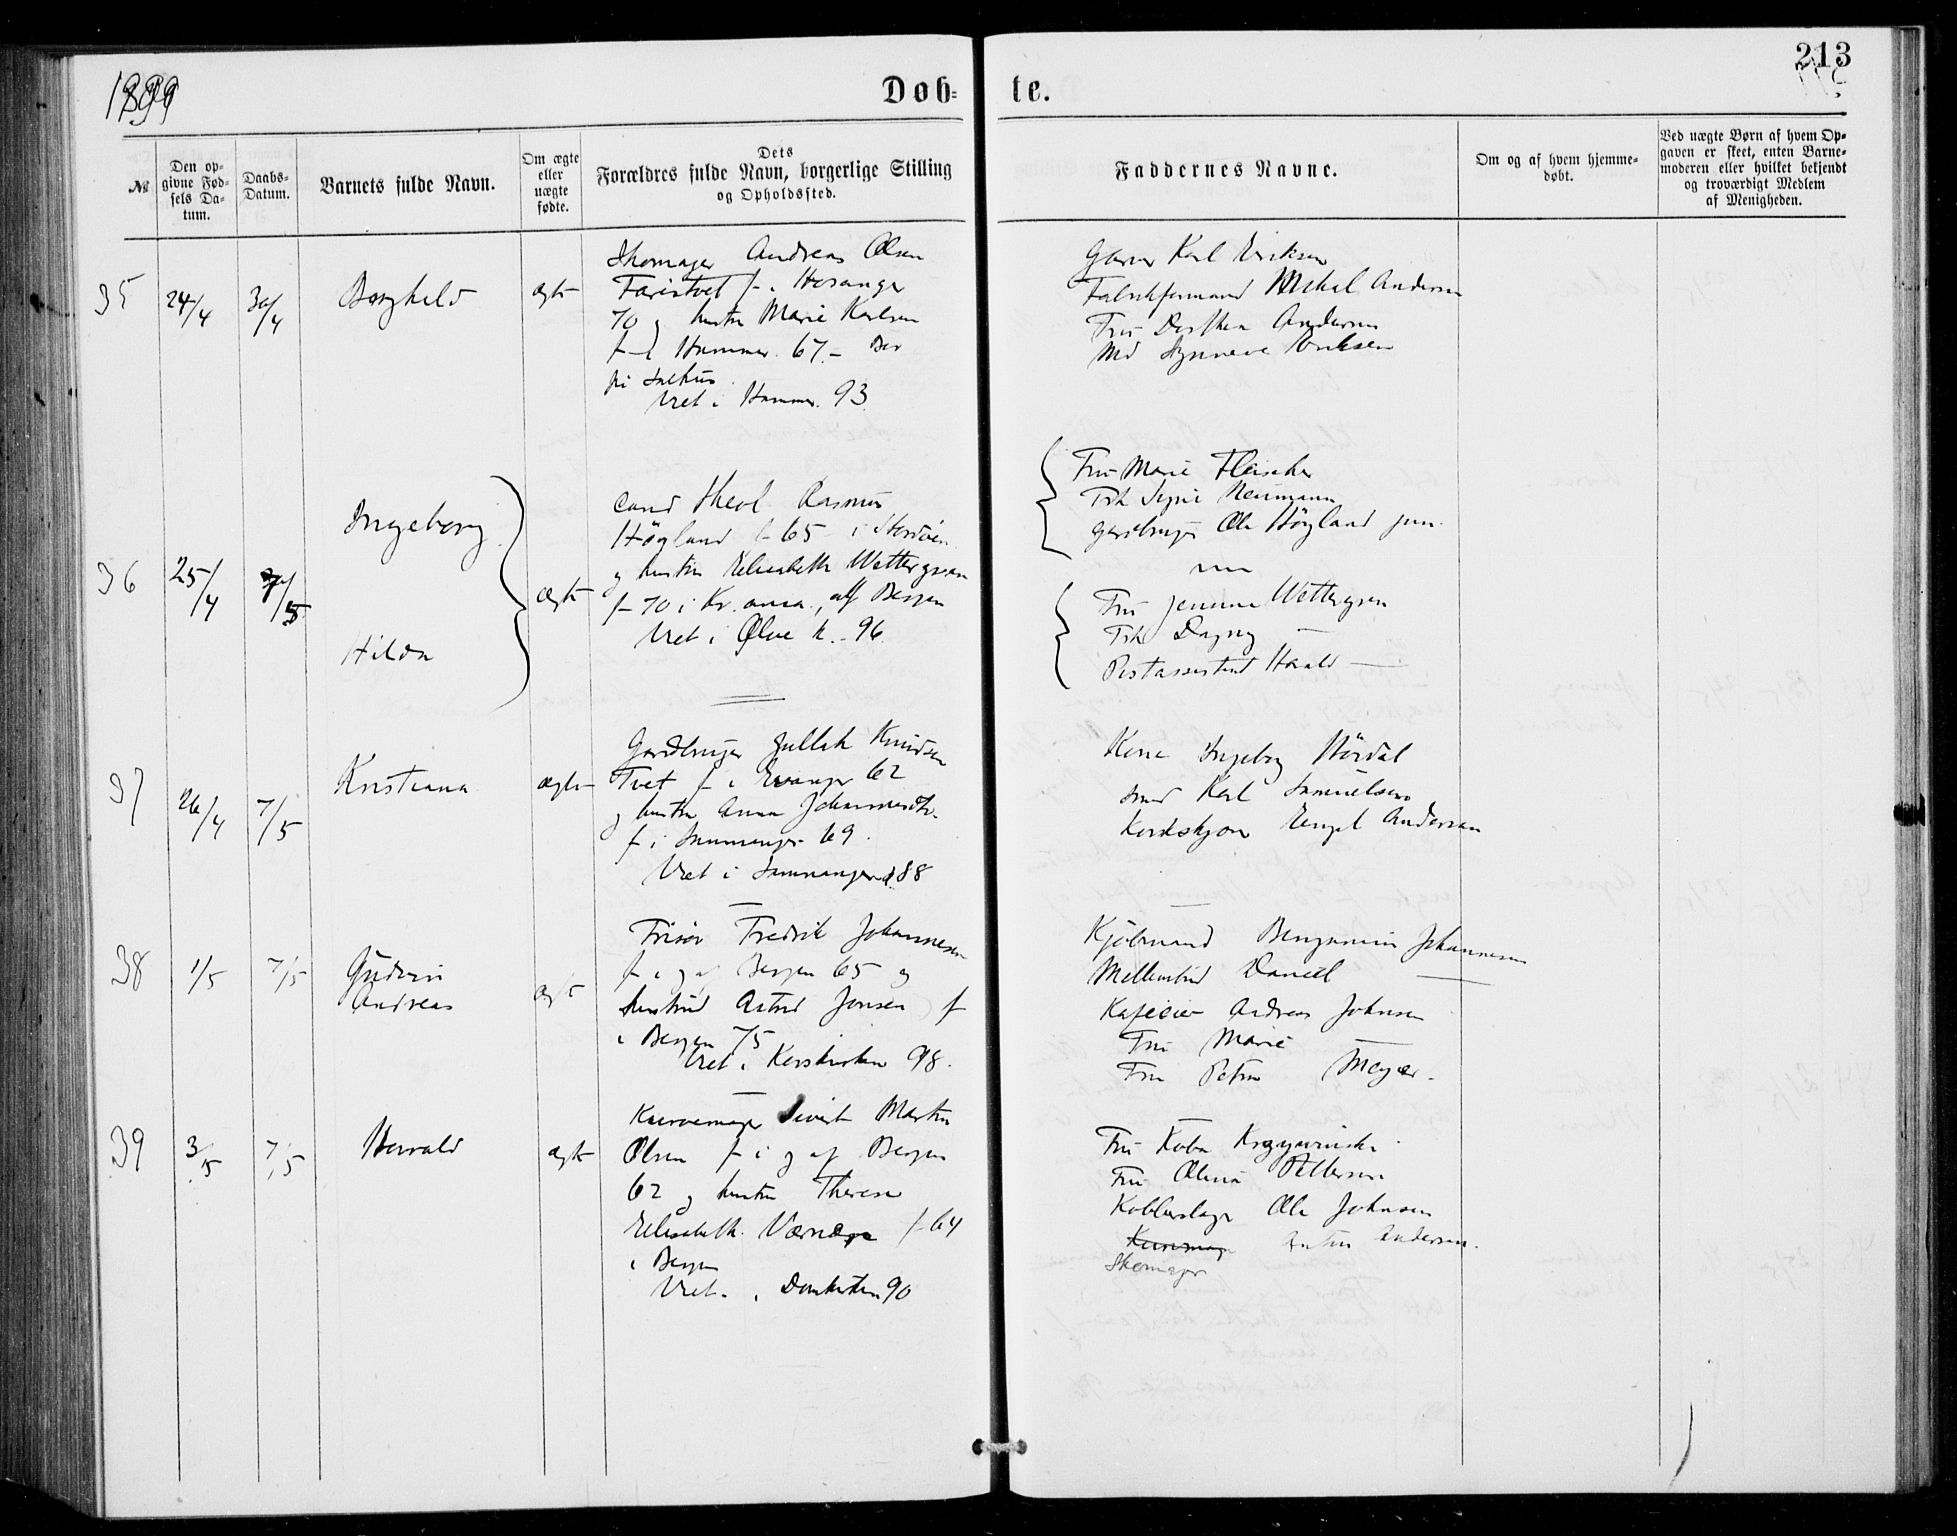 1899
Døb-
te.
213
№
Den op-
givne Fød-
sels Da-
tum.
Daabs-
Datum.
Barnets fulde Navn.
Om ægte
eller
uægte
fødte.
Dets
Forældres fulde Navn, borgerlige Stilling
og Opholdssted.
Faddernes Navne.
Om og af hvem hjemme-
døbt.
Ved uægte Børn af hvem Op-
gaven er skeet, enten Barne-
moderen eller hvilket bekjendt
og troværdigt Medlem
af Menigheden.
35
24/4
30/4
Borghild
ægte
Skomager Andreas Olsen
Faristvet f. i Hosanger
70 og hustru Marie Karlsen
f i Hammer 67. - Bor
på Salhus
Viet i Hammer 93
Karl Eriksen
Mikal Andersen
Fru Dorthea Andersen
Md Synneve Eriksen
36
25/4
7/5
Ingeborg
Hilda
ægte
cand theol Rasmus
Høgland f 65 i
og hustru Elisabeth Wettergreen
f 70 i Kr. ansa., af Bergen
Viet i Ølve k. 96
Fru Marie Fleischer
Frk Signe Neumann
Gardbruger Ole Høgland jun.
Fru Wettergreen
Frk Dagny —
Postassistent Harald —
37
26/4
7/5
Kristiana
ægte
Gardbruger Gullak Knudsen
Tvet f i Evanger 62
og hustru Anna Johannesdtr.
f i Samnanger 69.
Viet i Samnanger 88
Kone Ingeborg Hördal
Smed Karl Samuelsen
Engel Andersen
38
1/5
7/5
Andreas
ægte
Frisør Fredrik Johannesen
f i og af Bergen 65 og
hustru Astrid Jonsen f
i Bergen 75
Viet i Korskirken 98.
Kjøbmand Benjamin Johannesen
Daniel —
Andreas Johnsen
Fru Marie —
Fru Petra Meyer.
39
3/5
7/5
Harald
ægte
Kurvemager Sivert Martin
Olsen f i og af Bergen
62 og hustru Therese
Elisabeth f 64
i Bergen
Viet i Domkirken 90
Fru
Fru Olina Pettersen
Kobberslager Ole Johnsen
Kurvmager Anton Andersen.
Skomager